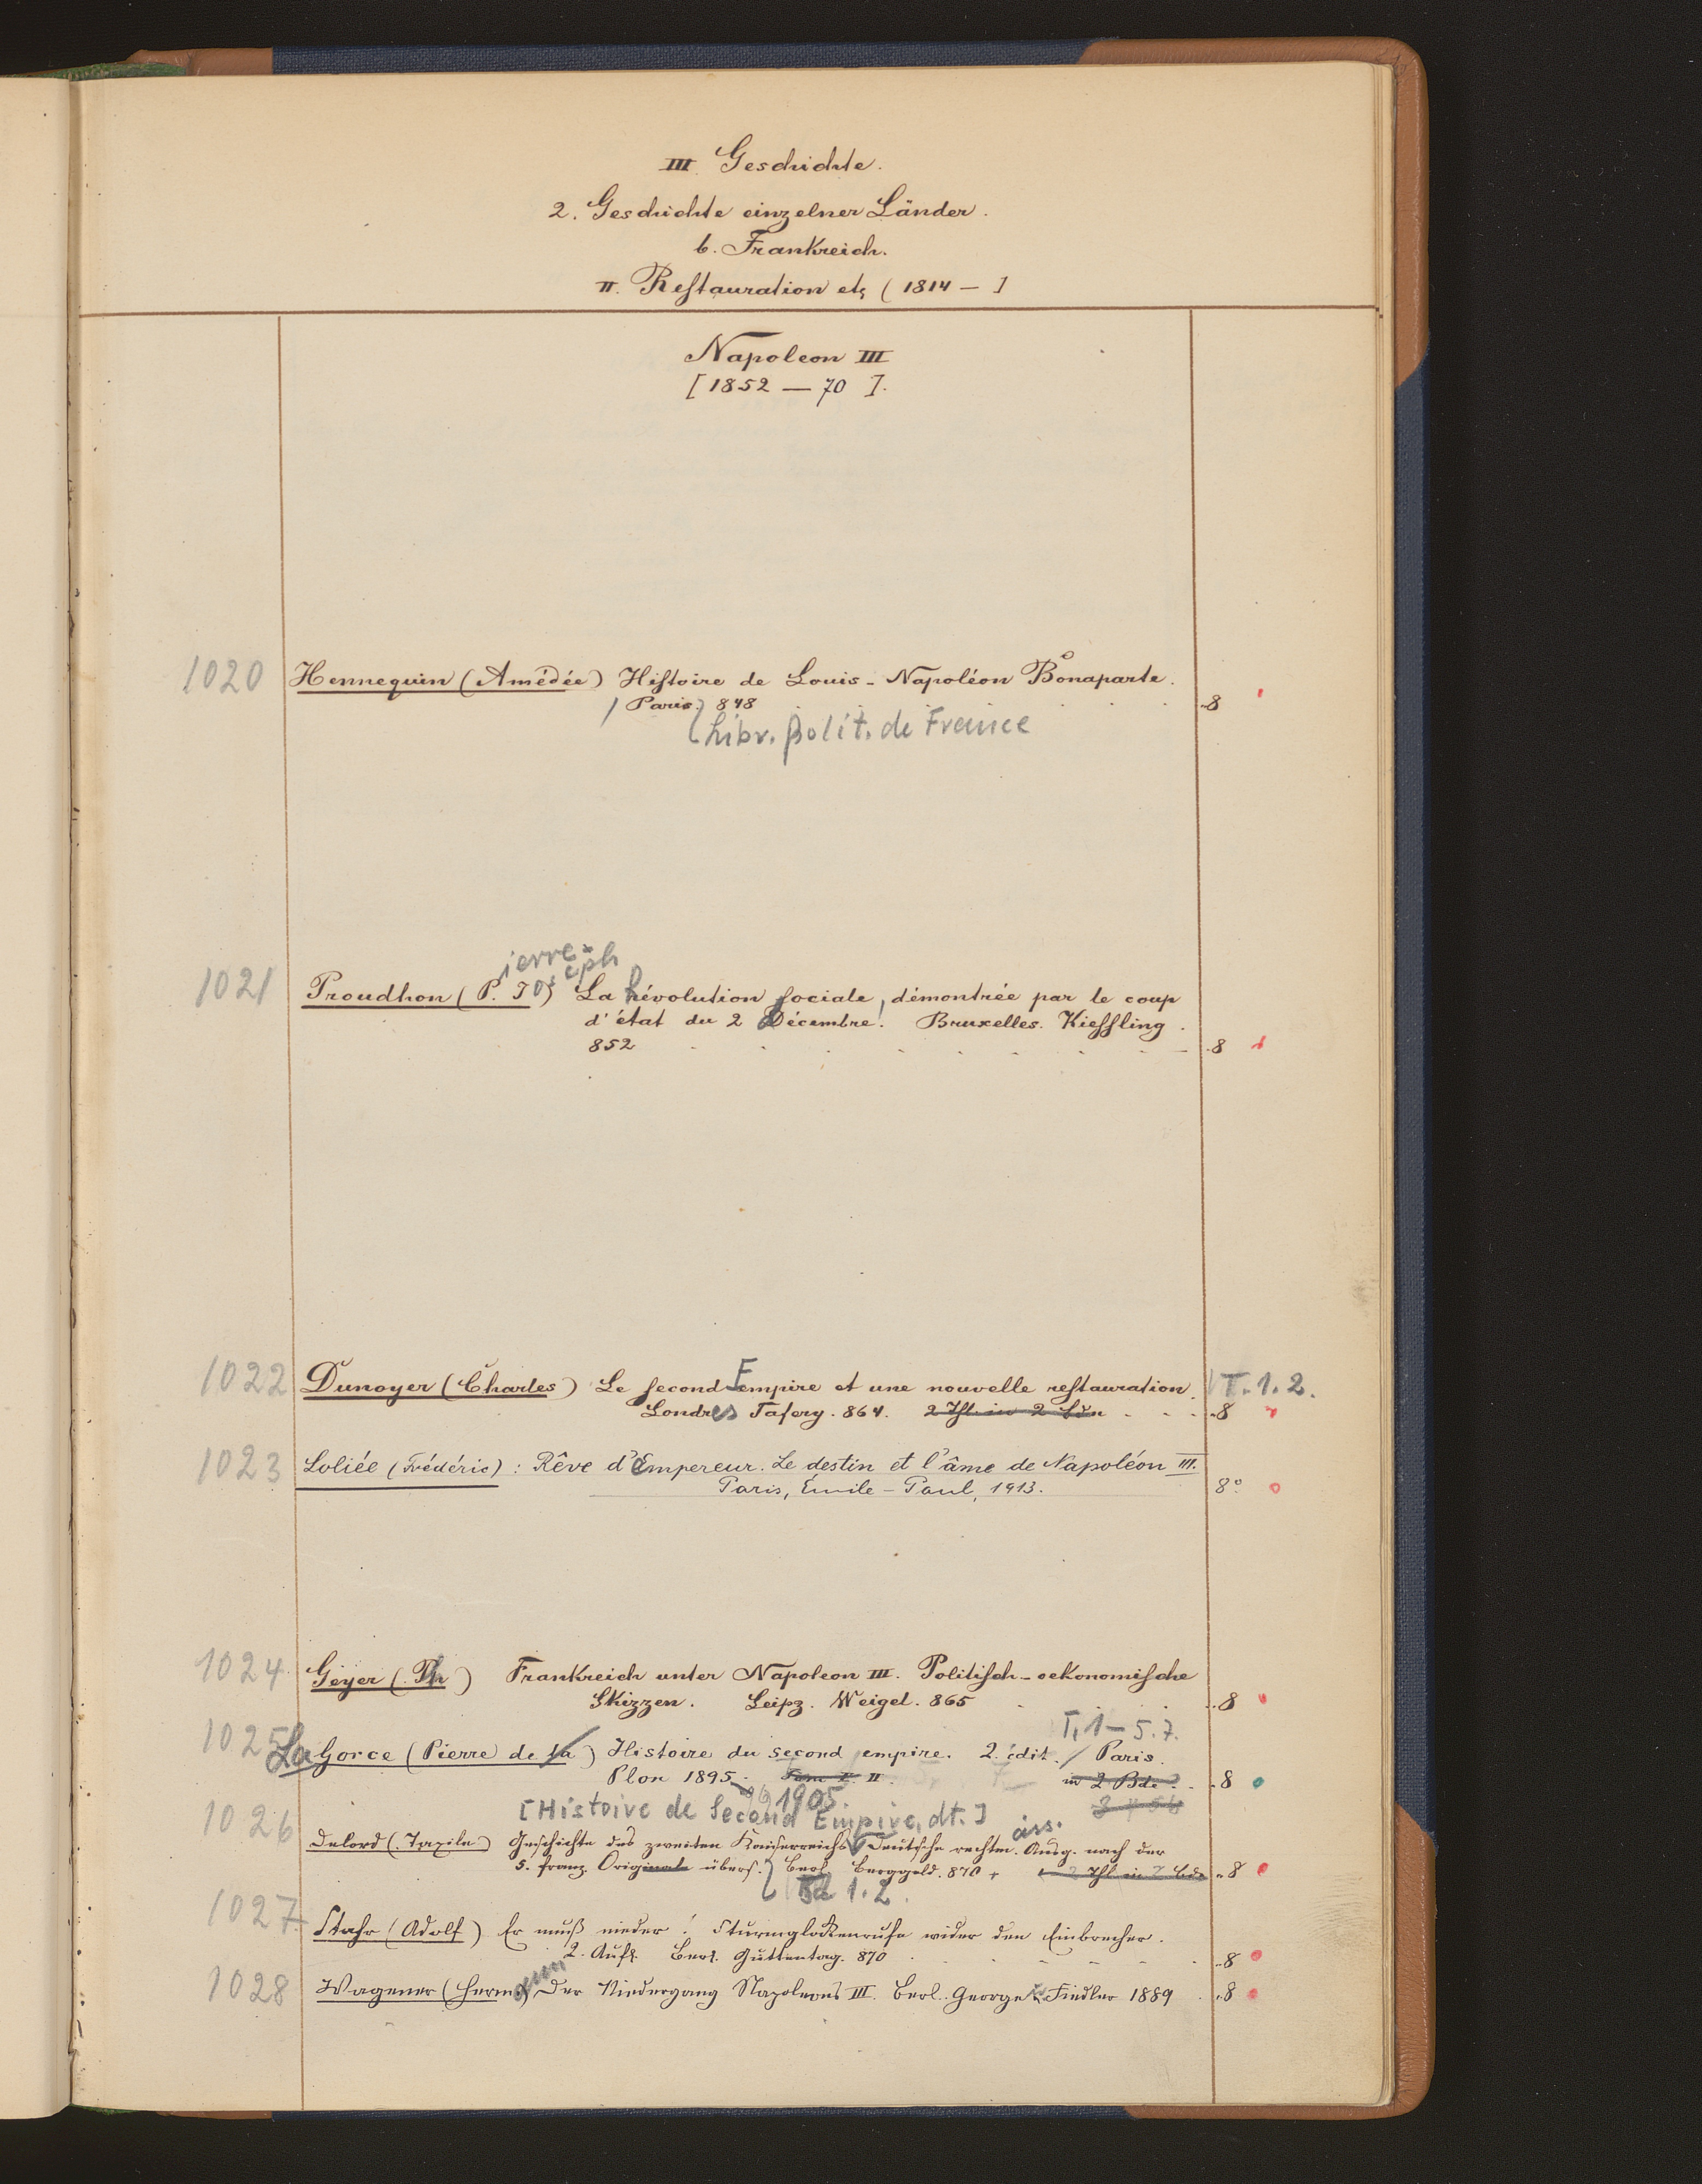 III. Geschichte.
2. Geschichte einzelner Länder.
b. Frankreich.
II. Reſtauration etc (1814 — ]
Napoleon III
[1852 — 70 ].
1020 Hennequin (Amédée) Hiſtoire de Louis-Napoléon Bonaparte.
/ Paris. 848 8
Libr. polit. de France
ierre eph
1021 Proudhon (P. Jos) La Révolution ſociale, démontrée par le coup
d'état du 2 Décembre. Bruxelles. Kieſſling.
852 8
1022 Dunoyer (Charles) Le ſecond Empire et une nouvelle reſtauration. T. 1. 2.
Londres Tafery. 864. 2 Thl. in 2 Bdn 8
1023 Loliée (Frédéric): Rêve d'Empereur. Le destin et l'âme de Napoléon III.
Paris, Émile-Paul, 1913. 8°
1024 Geyer (Ph) Frankreich unter Napoleon III. Politiſch-oekonomiſche
Skizzen. Leipz. Weigel. 865 8
T. 1 — 5. 7.
1025 La Gorce (Pierre de la) Histoire du second empire. 2. édit. / Paris.
Plon 1895. Tome I. II. in 2 Bde. 8
96 1905.
[Histoire de Second Empire, dt.]
1026 Delord (Taxile) Geschichte des zweiten Kaiserreichs Deutsche rechtm. Ausg. nach der
5. franz. Originale übers. Berl. Berggold. 870 + 2 Thl. in 2 Bde 8
Bd 1. 2.
1027 Stahr (Adolf) Er muß nieder! Sturmglockenrufe wider den Einbrecher.
2. Aufl. Berl. Guttentag. 870 8
1028 Wagener (Hermann) Der Niedergang Napoleons III. Berl. George & Fiedler 1889 8